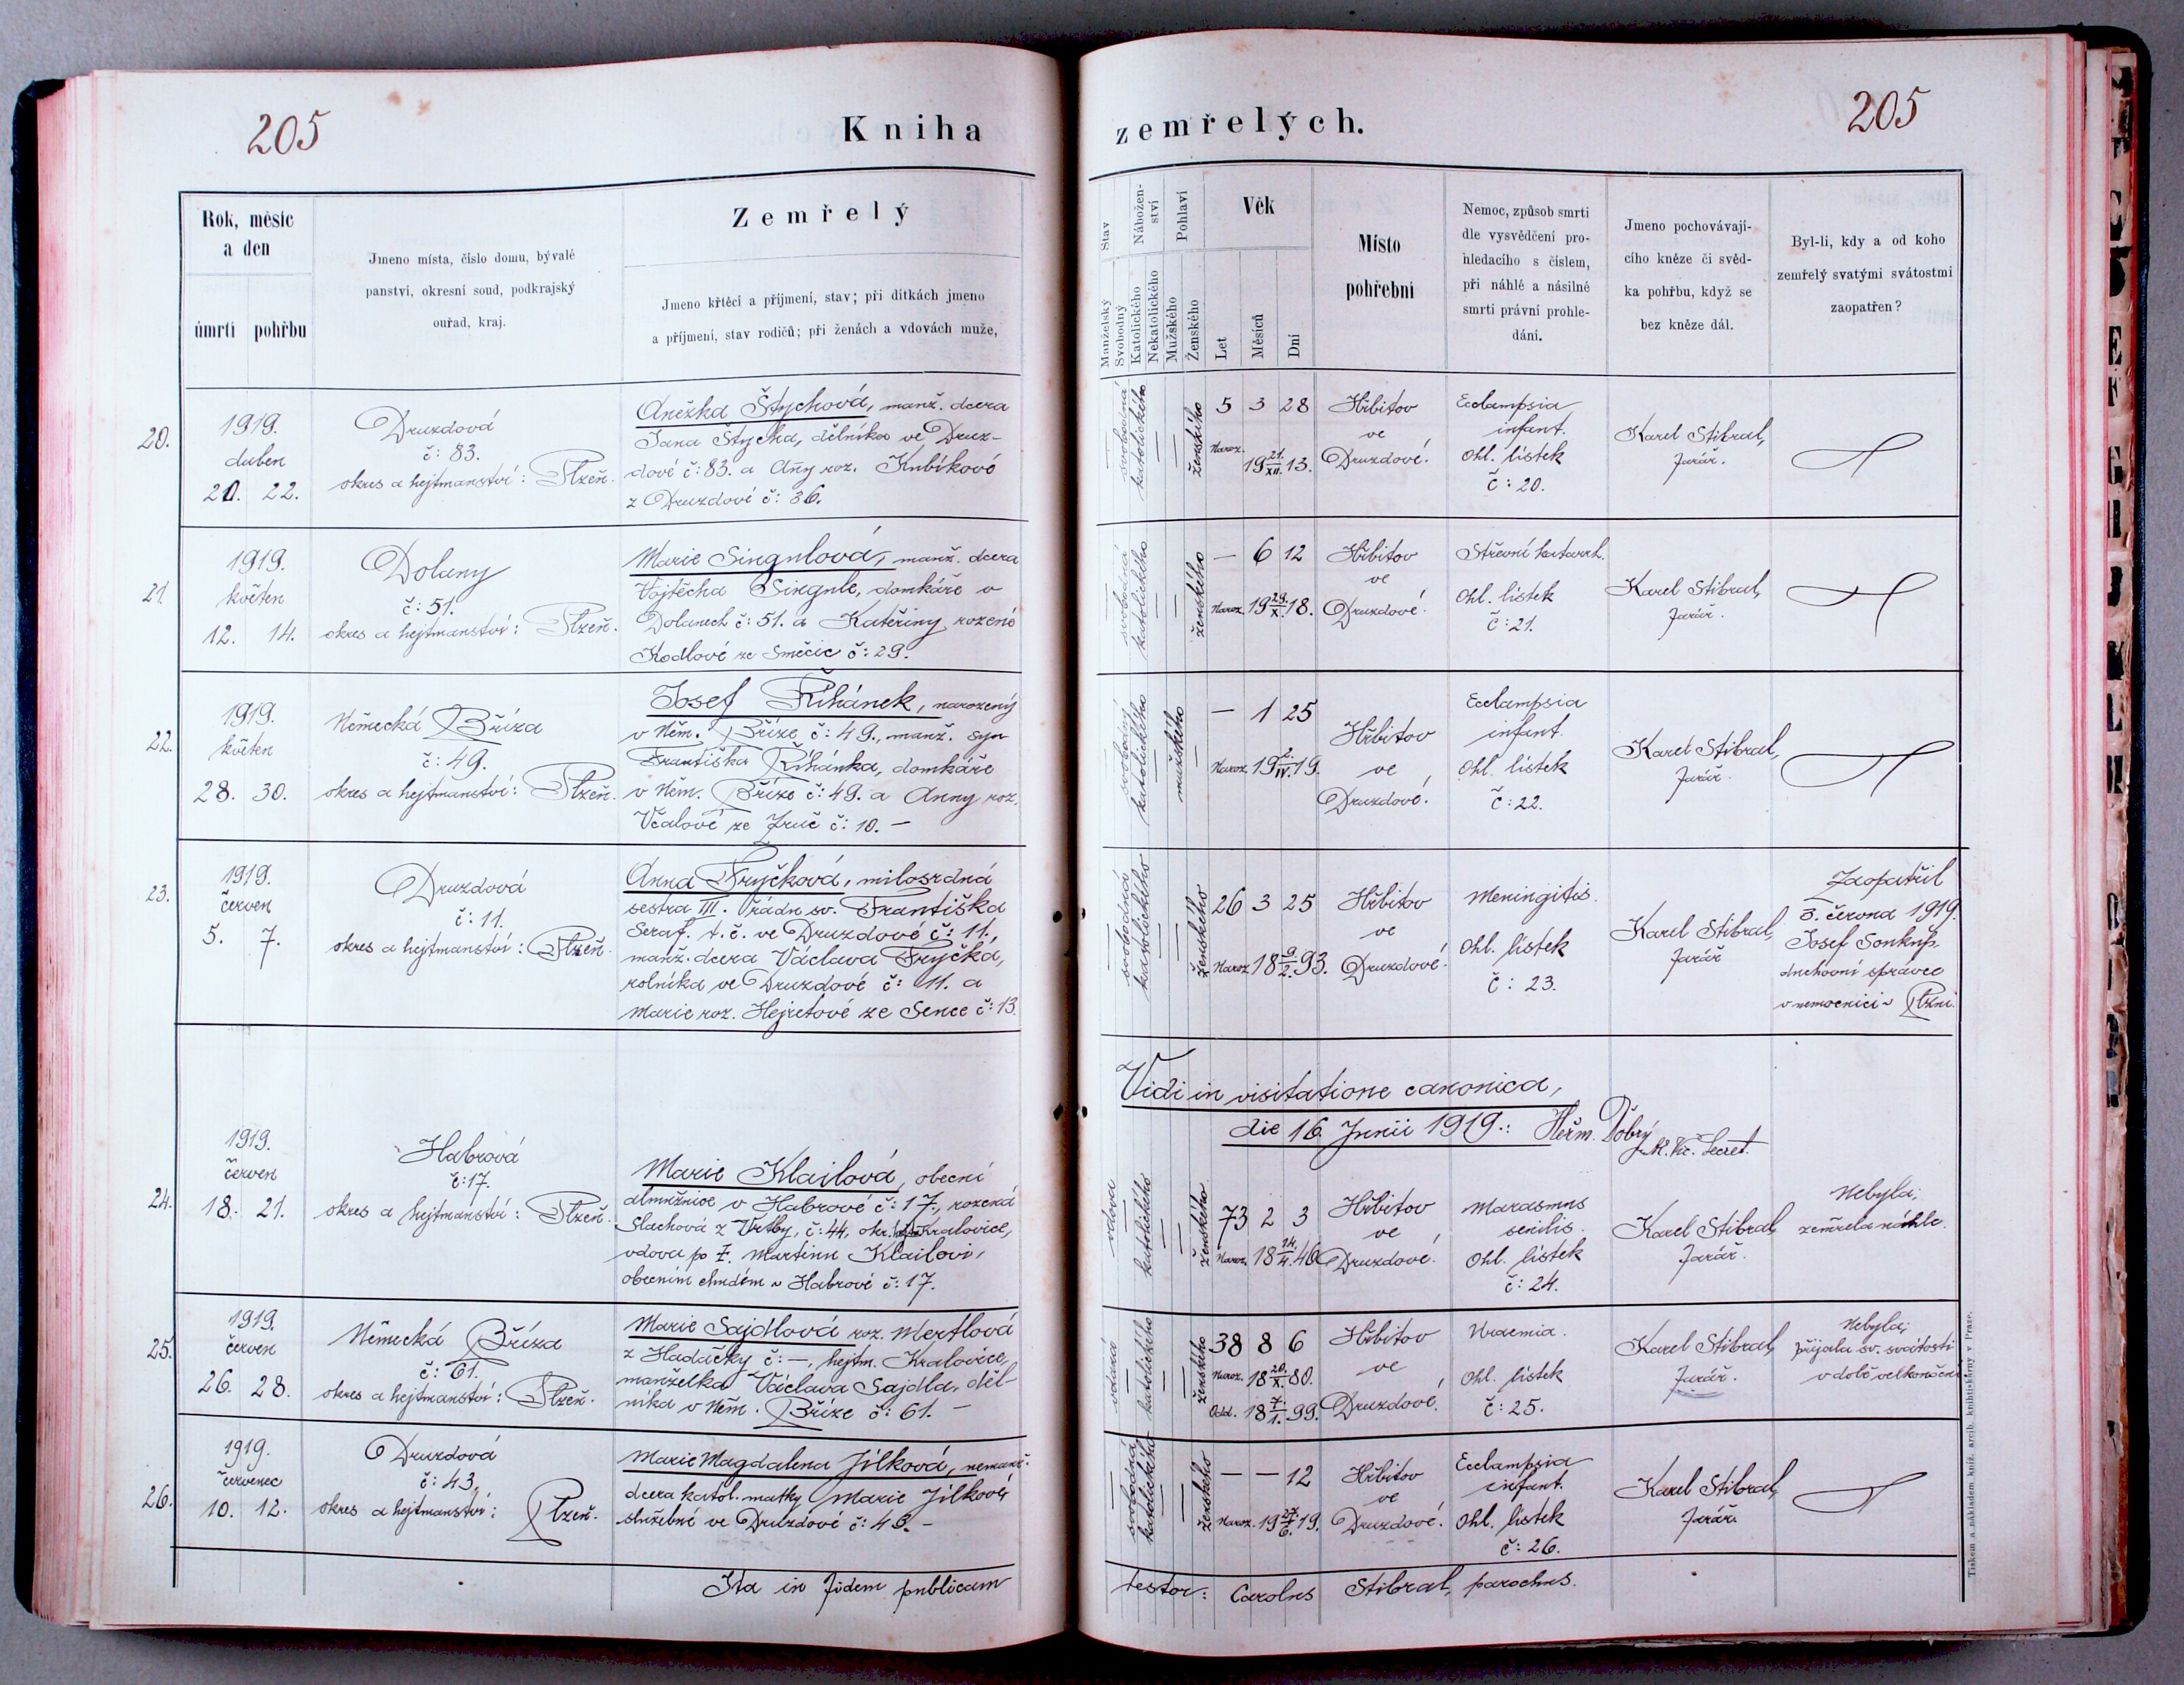 205
Kniha
zemřelých.
205
Rok, měsíc
a den
úmrtí pohřbu
Jmeno místa, číslo domu, bývalé
panství, okresní soud, podkrajský
ouřad, kraj.
Zemřelý
Jmeno křtěcí a příjmení, stav; při dítkách jmeno
a příjmení, stav rodičů; při ženách a vdovách muže,
Stav
Manželský
Svobodný
Nábožen-
ství
Katolického
Nekatolického
Pohlaví
Mužského
Ženského
Věk
Let
Měsíců
Dní
Místo
pohřební
Nemoc, způsob smrti
dle vysvědčení pro-
hledacího s číslem,
při náhlé a násilné
smrti právní prohle-
dání.
Jmeno pochovávají-
cího kněze či svěd-
ka pohřbu, když se
bez kněze dál.
Byl-li, kdy a od koho
zemřelý svatými svátostmi
zaopatřen?
20.
1919.
duben
20. 22.
Druzdová
č: 83.
okres a hejtmanství: Plzeň.
Anežka Štychová, manž. dcera
Jana Štycha, dělníka ve Druz-
dové č: 83. a Anny roz. Kubíkové
z Druzdové č: 36.
svobodná
katolického
ženského
5 3 28
Naroz. 19 21./XII. 13.
Hřbitov
ve
Druzdové.
Ecclampsia
infant.
Ohl. lístek
č: 20.
Karel Stibral,
farář.
21.
1919.
květen
12. 14.
Dolany
č: 51.
okres a hejtmanství: Plzeň.
Marie Singulová, manž. dcera
Vojtěcha Singule, domkáře v
Dolanech č: 51. a Kateřiny rozené
Kodlové ze Smečic č: 29.
svobodná
katolického
ženského
— 6 12
Naroz. 19 29./X. 18.
Hřbitov
ve
Druzdové.
Střevní katarrh.
Ohl. lístek
č: 21.
Karel Stibral,
farář.
22.
1919.
květen
28. 30.
Německá Bříza
č: 49.
okres a hejtmanství: Plzeň.
Josef Říhánek, narozený
v Něm. Bříze č: 49., manž. syn
Františka Říhánka, domkáře
v Něm. Bříze č: 49. a Anny roz.
Včalové ze Zruč č: 10. —
svobodný
katolického
mužského
— 1 25
Naroz. 19 2./IV. 19.
Hřbitov
ve
Druzdové.
Ecclampsia
infant.
Ohl. lístek
č: 22.
Karel Stibral,
farář.
23.
1919.
červen
5. 7.
Druzdová
č: 11.
okres a hejtmanství: Plzeň.
Anna Fryčková, milosrdná
sestra III. řádu sv. Františka
Seraf. t. č. ve Druzdové č: 11.,
manž. dcera Václava Fryčka,
rolníka ve Druzdové č: 11. a
Marie roz. Hejretové ze Sence č: 13.
svobodná
katolického
ženského
26 3 25
Naroz. 18 9./2. 93.
Hřbitov
ve
Druzdové.
Meningitis.
Ohl. lístek
č: 23.
Karel Stibral,
farář
Zaopatřil
3. června 1919.
Josef
duchovní správce
v nemocnici v Plzni.
Vidi in visitatione canonica,
die 16. Junii 1919.: Heřm. Dobrý
Vic. Secret.
24.
1919.
červen
18. 21.
Habrová
č: 17.
okres a hejtmanství: Plzeň.
Marie Klailová, obecní
almužnice v Habrové č: 17., rozená
Slachová z Vrtby, č: 44, okr. Kralovice,
vdova po † Martinu Klailovi,
obecním chudém v Habrové č: 17.
vdova
katolického
ženského
73 2 3
Naroz. 18 14./4. 46.
Hřbitov
ve
Druzdové.
Marasmus
senilis.
Ohl. lístek
č: 24.
Karel Stibral,
farář.
Nebyla;
zemřela náhle.
25.
1919.
červen
26. 28.
Německá Bříza
č: 61.
okres a hejtmanství: Plzeň.
Marie Sajdlová roz. Mertlová
z Hadačky č: —, hejtm. Kralovice,
manželka Václava Sajdla, děl-
níka v Něm. Bříze č: 61. —
vdaná
katolického
ženského
38 8 6
Naroz. 18 20./X. 80.
Odd. 18 7./1. 99.
Hřbitov
ve
Druzdové.
Uraemia.
Ohl. lístek
č: 25.
Karel Stibral,
farář.
Nebyla;
přijala sv. svátosti
v době velikonoční
26.
1919.
červenec
10. 12.
Druzdová
č: 43.
okres a hejtmanství: Plzeň.
Marie Magdalena Jílková, nemanž.
dcera katol. matky Marie Jílkové,
služebné ve Druzdové č: 43. —
svobodná
katolického
ženského
— — 12
Naroz. 19 27./6. 19.
Hřbitov
ve
Druzdové.
Ecclampsia
infant.
Ohl. lístek
č: 26.
Karel Stibral,
farář.
Ita in fidem publicam
testor: Carolus Stibral, parochus.
Tiskem a nákladem kníž. arcib. knihtiskárny v Praze.